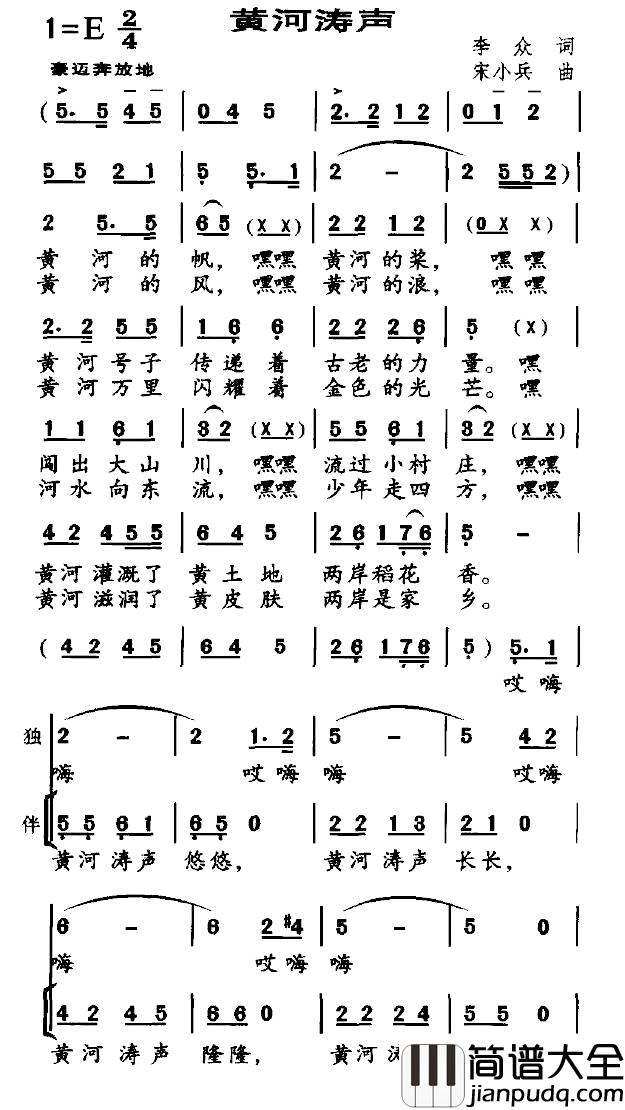 黄河涛声
1=E 2/4
豪迈奔放地
李众 词
宋小兵 曲
(5. 5 4 5 | 0 4 5 | 2. 2 1 2 | 0 1 2 |
5 5 2 1 | 5 5. 1 | 2 - | 2 5 5 2) |
2 5. 5 | 6 5 (X X) | 2 2 1 2 | (0 X X) |
黄 河的 帆, 嘿嘿 黄河的桨, 嘿嘿
黄 河的 风, 嘿嘿 黄河的浪, 嘿嘿
2. 2 5 5 | 1 6 6 | 2 2 2 6 | 5 (X) |
黄河号子 传递着 古老的力 量。嘿
黄河万里 闪耀着 金色的光 芒。嘿
1 1 6 1 | 3 2 (X X) | 5 5 6 1 | 3 2 (X X) |
闯出大山 川, 嘿嘿 流过小村 庄, 嘿嘿
河水向东 流, 嘿嘿 少年走四 方, 嘿嘿
4 2 4 5 5 | 6 4 5 | 2 6 1 7 6 | 5 - |
黄河灌溉了 黄土地 两岸稻花 香。
黄河滋润了 黄皮肤 两岸是家 乡。
(4 2 4 5 | 6 4 5 | 2 6 1 7 6 | 5) 5. 1 |
哎嗨
独 2 - | 2 1. 2 | 5 - | 5 4 2 |
嗨 哎嗨 嗨 哎嗨
伴 5 5 6 1 | 6 5 0 | 2 2 1 3 | 2 1 0 |
黄河涛声 悠悠, 黄河涛声 长长,
6 - | 6 2 #4 | 5 - | 5 0 |
嗨 哎嗨 嗨
4 2 4 5 | 6 6 0 | 2 2 2 4 | 5 5 0 |
黄河涛声 隆隆, 黄河
简谱大全
jianpudq.com